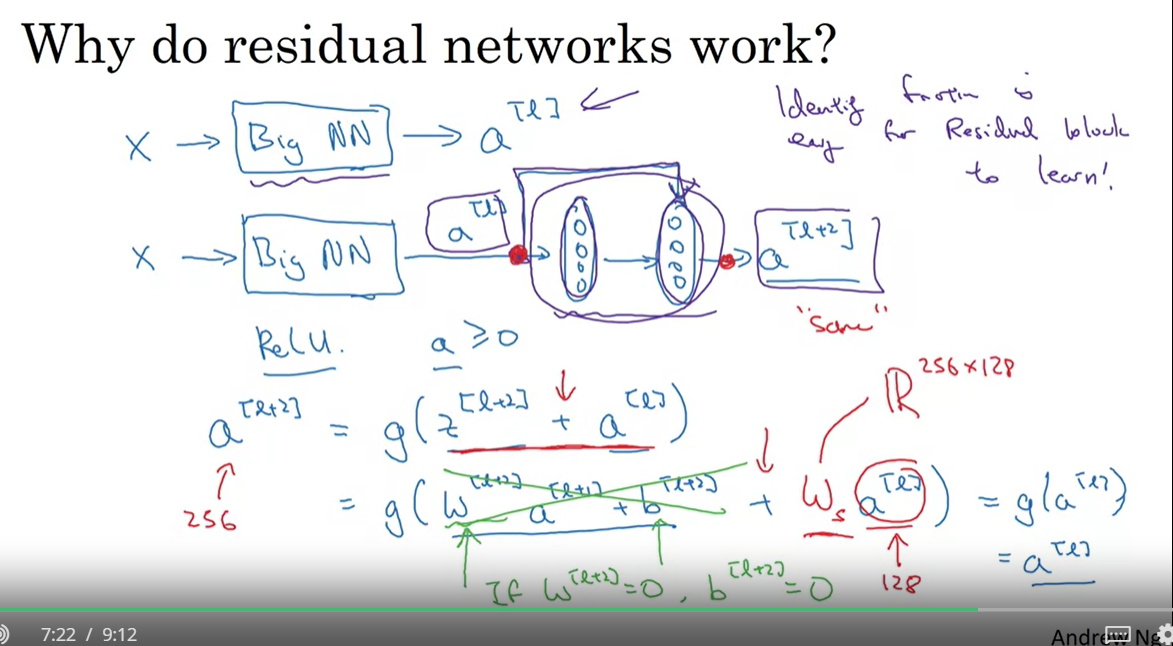 Why do residual networks work?
X → Big NN → a^[l]
Identity function is
easy for Residual block
to learn!
X → Big NN a^[l] → a^[l+2]
"same"
ReLU. a ≥ 0
a^[l+2] = g(z^[l+2] + a^[l])
ℝ^256×128
256
= g(W^[l+2] a^[l+1] + b^[l+2] + W_s a^[l]) = g(a^[l])
= a^[l]
If W^[l+2] = 0, b^[l+2] = 0
128
7:22 / 9:12
Andrew Ng